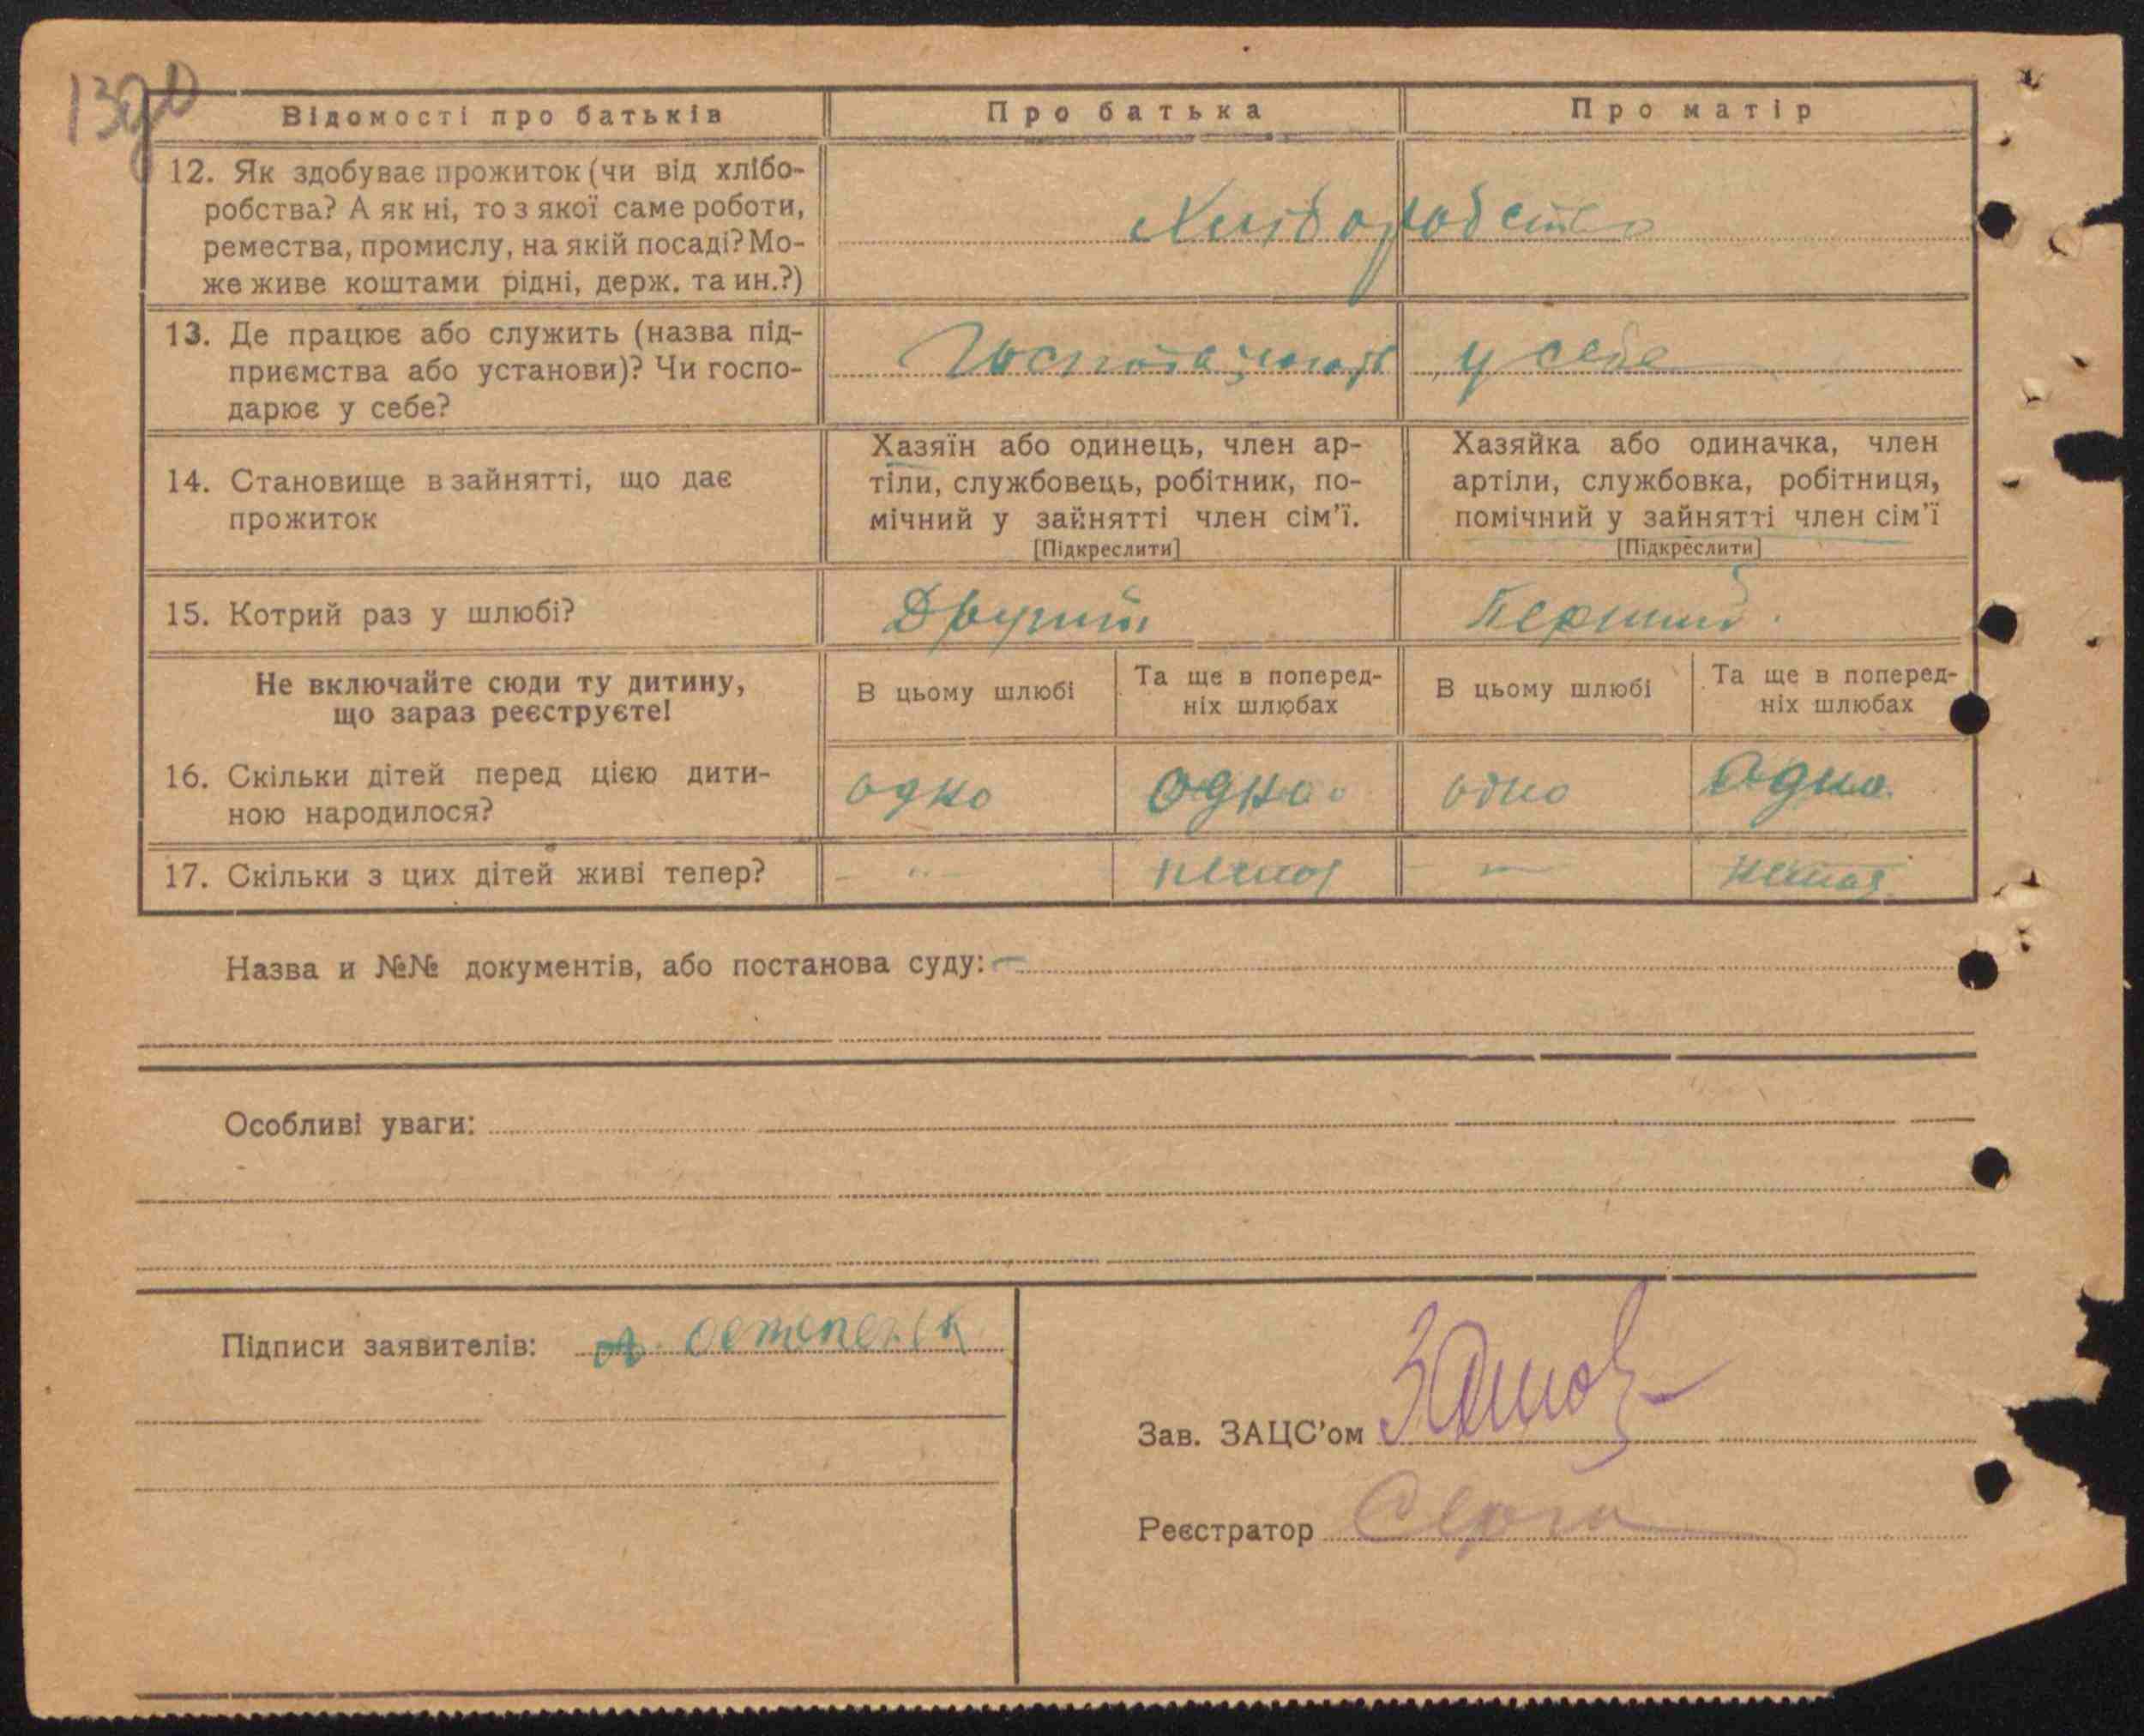 Відомості про батьків
Про батька
Про матір
12. Як здобуває прожиток (чи від хлібо-
робства? А як ні, то з якої саме роботи,
ремества, промислу, на якій посаді? Мо-
же живе коштами рідні, держ. та ин.?)
Хліборобство
13. Де працює або служить (назва під-
приємства або установи)? Чи госпо-
дарює у себе?
у себе
14. Становище в зайнятті, що дає
прожиток
Хазяїн або одинець, член ар-
тіли, службовець, робітник, по-
мічний у зайнятті член сім'ї.
[Підкреслити]
Хазяйка або одиначка, член
артіли, службовка, робітниця,
помічний у зайнятті член сім'ї
[Підкреслити]
15. Котрий раз у шлюбі?
Другий
Перший.
Не включайте сюди ту дитину,
що зараз реєструєте!
В цьому шлюбі
Та ще в поперед-
ніх шлюбах
В цьому шлюбі
Та ще в поперед-
ніх шлюбах
16. Скільки дітей перед цією дити-
ною народилося?
одно
одно
одно
одно
17. Скільки з цих дітей живі тепер?
немає
немає
Назва и №№ документів, або постанова суду: –
Особливі уваги:
Підписи заявителів:
Зав. ЗАЦС'ом
Реєстратор